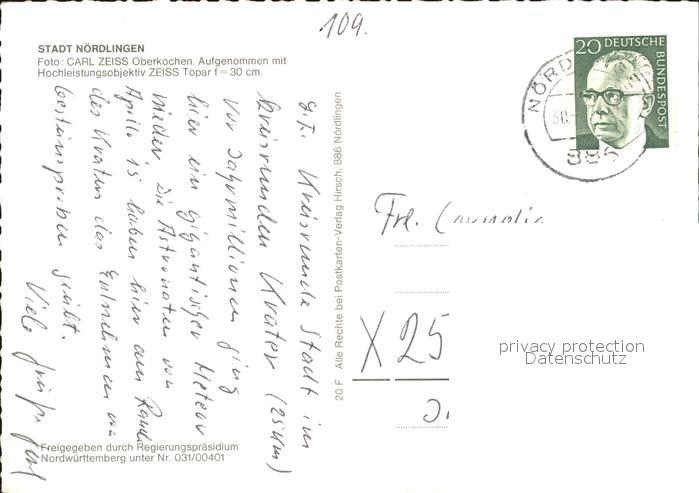 109.
STADT NÖRDLINGEN
Foto: CARL ZEISS Oberkochen. Aufgenommen mit
Hochleistungsobjektiv ZEISS Topar f = 30 cm.
Kreisrunde Stadt im
kreisrunden Krater (25 km)
Vor Jahrmillionen ging
hier ein gigantischer Meteor
nieder. Die Astronauten von
Apollo 15 haben hier am Rande
des Kraters das Entnehmen von
Gesteinsproben geübt.
Viele Grüße
Freigegeben durch Regierungspräsidium
Nordwürttemberg unter Nr. 031/00401
20 F Alle Rechte bei Postkarten-Verlag Hirsch, 886 Nördlingen
20 DEUTSCHE
BUNDESPOST
NÖRD
30.
886
Frl.
X 25
privacy protection
Datenschutz